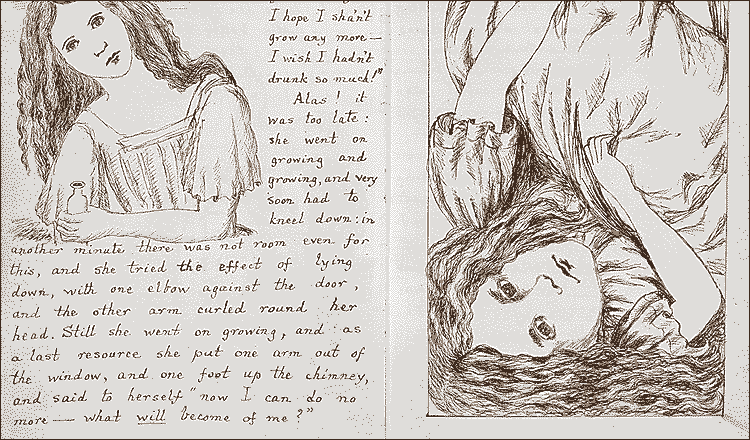 I hope I sha'n't
grow any more—
I wish I hadn't
drunk so much!"
Alas! it
was too late:
she went on
growing and
growing, and very
soon had to
kneel down: in
another minute there was not room even for
this, and she tried the effect of lying
down, with one elbow against the door,
and the other arm curled round her
head. Still she went on growing, and as
a last resource she put one arm out of
the window, and one foot up the chimney,
and said to herself "now I can do no
more — what will become of me?"